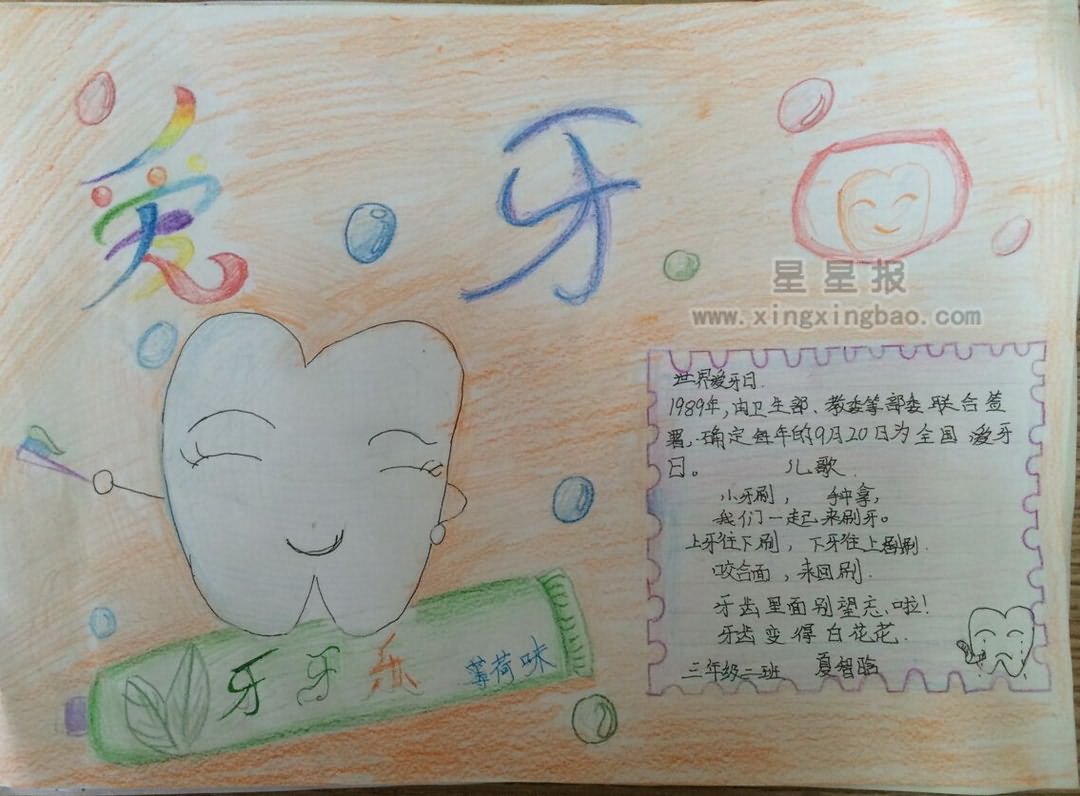 爱牙日
星星报
www.xingxingbao.com
世界爱牙日.
1989年,由卫生部、教委等部委联合签
署,确定每年的9月20日为全国爱牙
日。 儿歌
小牙刷, 手中拿,
我们一起来刷牙。
上牙往下刷,下牙往上刷刷.
咬合面,来回刷.
牙齿里面别望忘啦!
牙齿变得白花花.
三年级二班 夏智临
牙牙乐 薄荷味